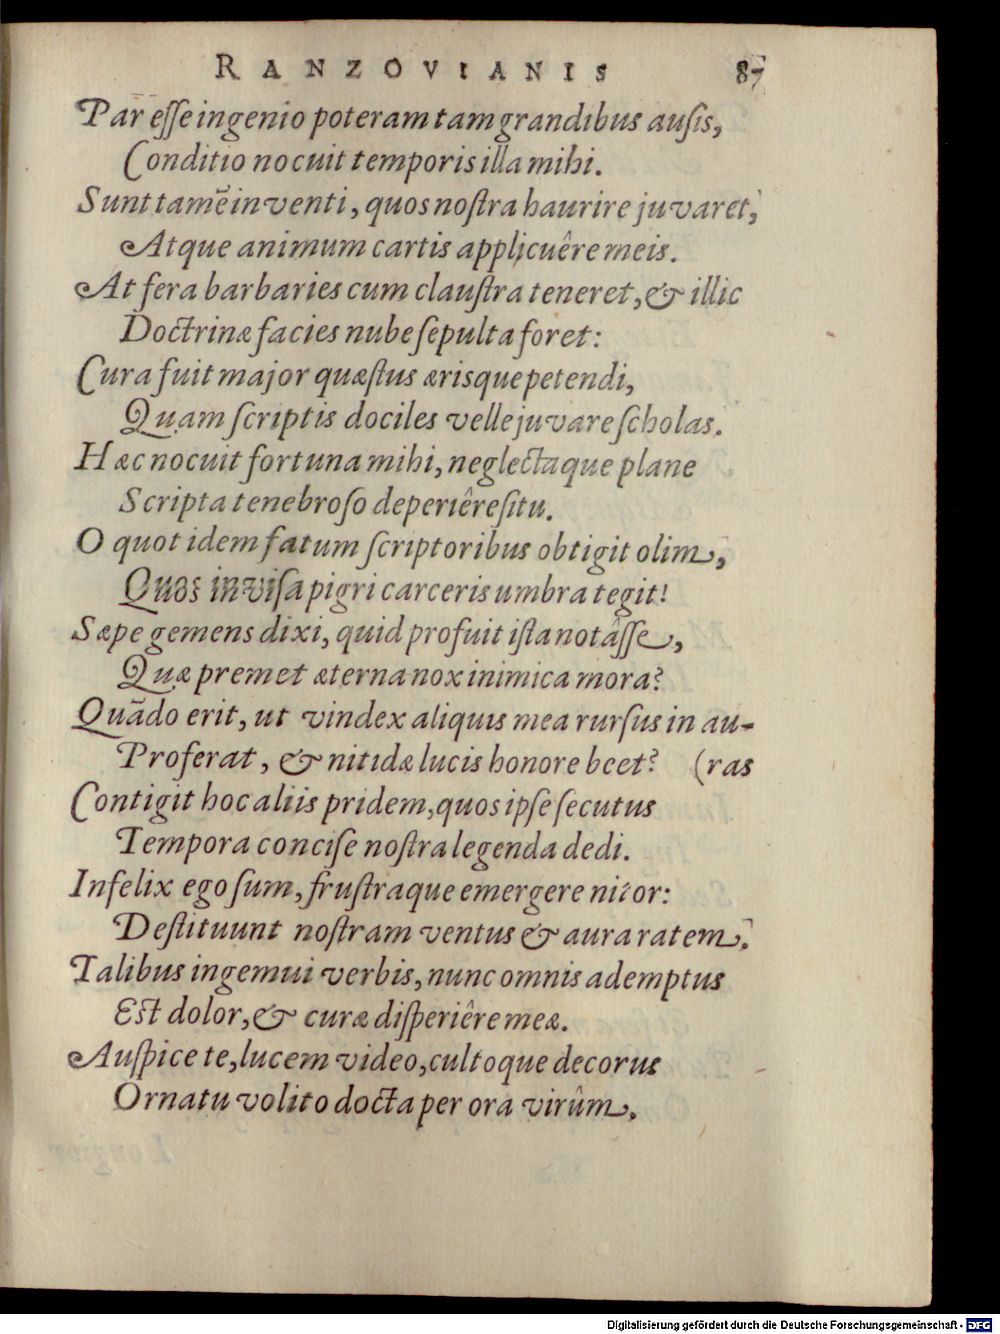 RANZOVIANIS 87
Par eſſe ingenio poteram tam grandibus auſis,
Conditio nocuit temporis illa mihi.
Sunt tamē inventi, quos noſtra haurire juvaret,
Atque animum cartis applicuêre meis.
At fera barbaries cum clauſtra teneret, & illic
Doctrinæ facies nube ſepulta foret:
Cura fuit major quæſtus ærisque petendi,
Quam ſcriptis dociles velle juvare ſcholas.
Hæc nocuit fortuna mihi, neglectaque plane
Scripta tenebroſo deperiêre ſitu.
O quot idem fatum ſcriptoribus obtigit olim,
Quos inviſa pigri carceris umbra tegit!
Sæpe gemens dixi, quid profuit iſta notâſſe,
Quæ premet æterna nox inimica mora?
Quādo erit, ut vindex aliquis mea rurſus in au-
Proferat, & nitidæ lucis honore beet? (ras
Contigit hoc aliis pridem, quos ipſe ſecutus
Tempora conciſe noſtra legenda dedi.
Infelix ego ſum, fruſtraque emergere nitor:
Deſtituunt noſtram ventus & aura ratem.
Talibus ingemui verbis, nunc omnis ademptus
Eſt dolor, & curæ diſperiêre meæ.
Auſpice te, lucem video, cultoque decorus
Ornatu volito docta per ora virûm.
Digitalisierung gefördert durch die Deutsche Forschungsgemeinschaft - DFG